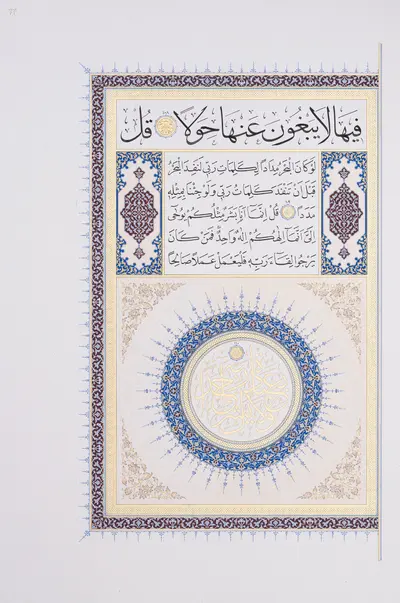 77
فيها لا يبغون عنها حولا قل
لو كان البحر مدادا لكلمات ربي لنفد البحر
قبل أن تنفد كلمات ربي ولو جئنا بمثله
مددا قل إنما أنا بشر مثلكم يوحى
إلي أنما إلهكم إله واحد فمن كان
يرجوا لقاء ربه فليعمل عملا صالحا